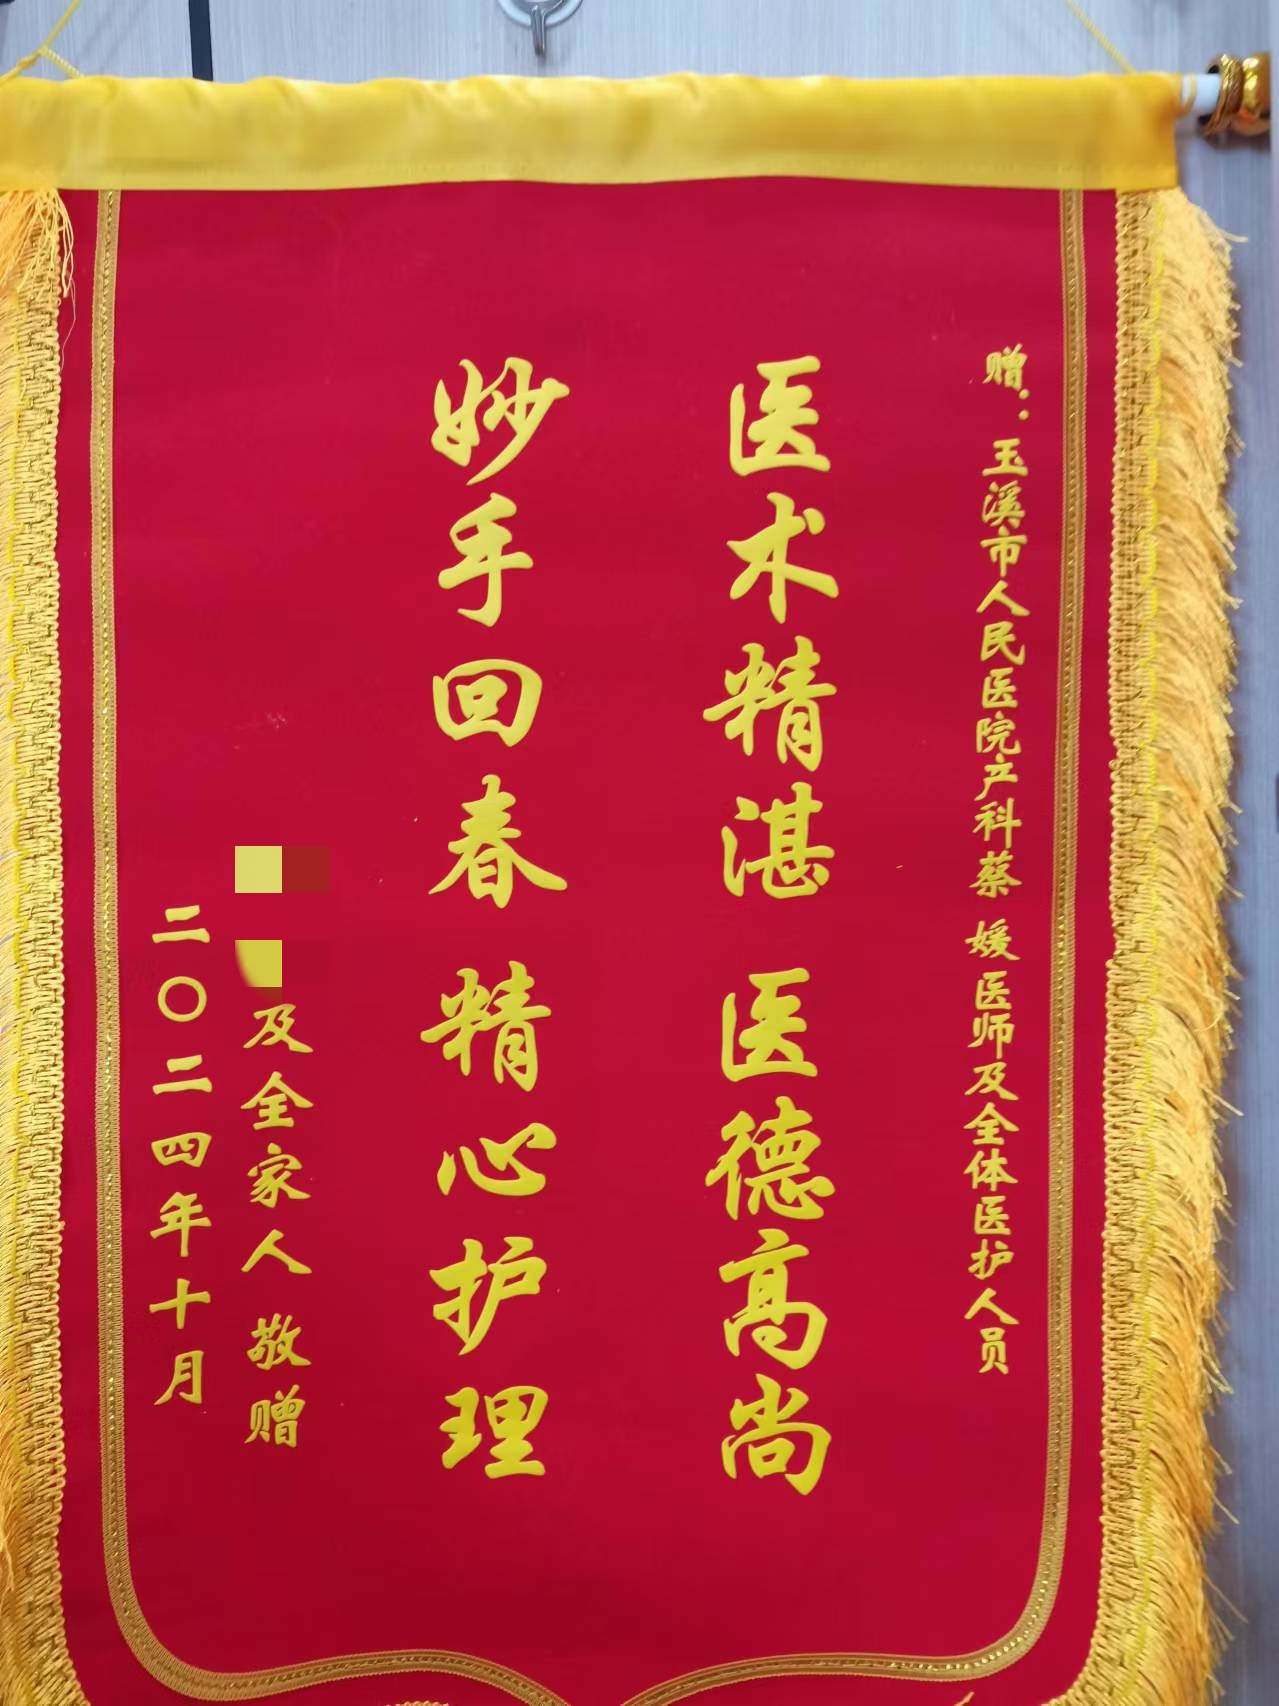 赠：玉溪市人民医院产科蔡 媛医师及全体医护人员
医术精湛 医德高尚
妙手回春 精心护理
及全家人 敬赠
二〇二四年十月